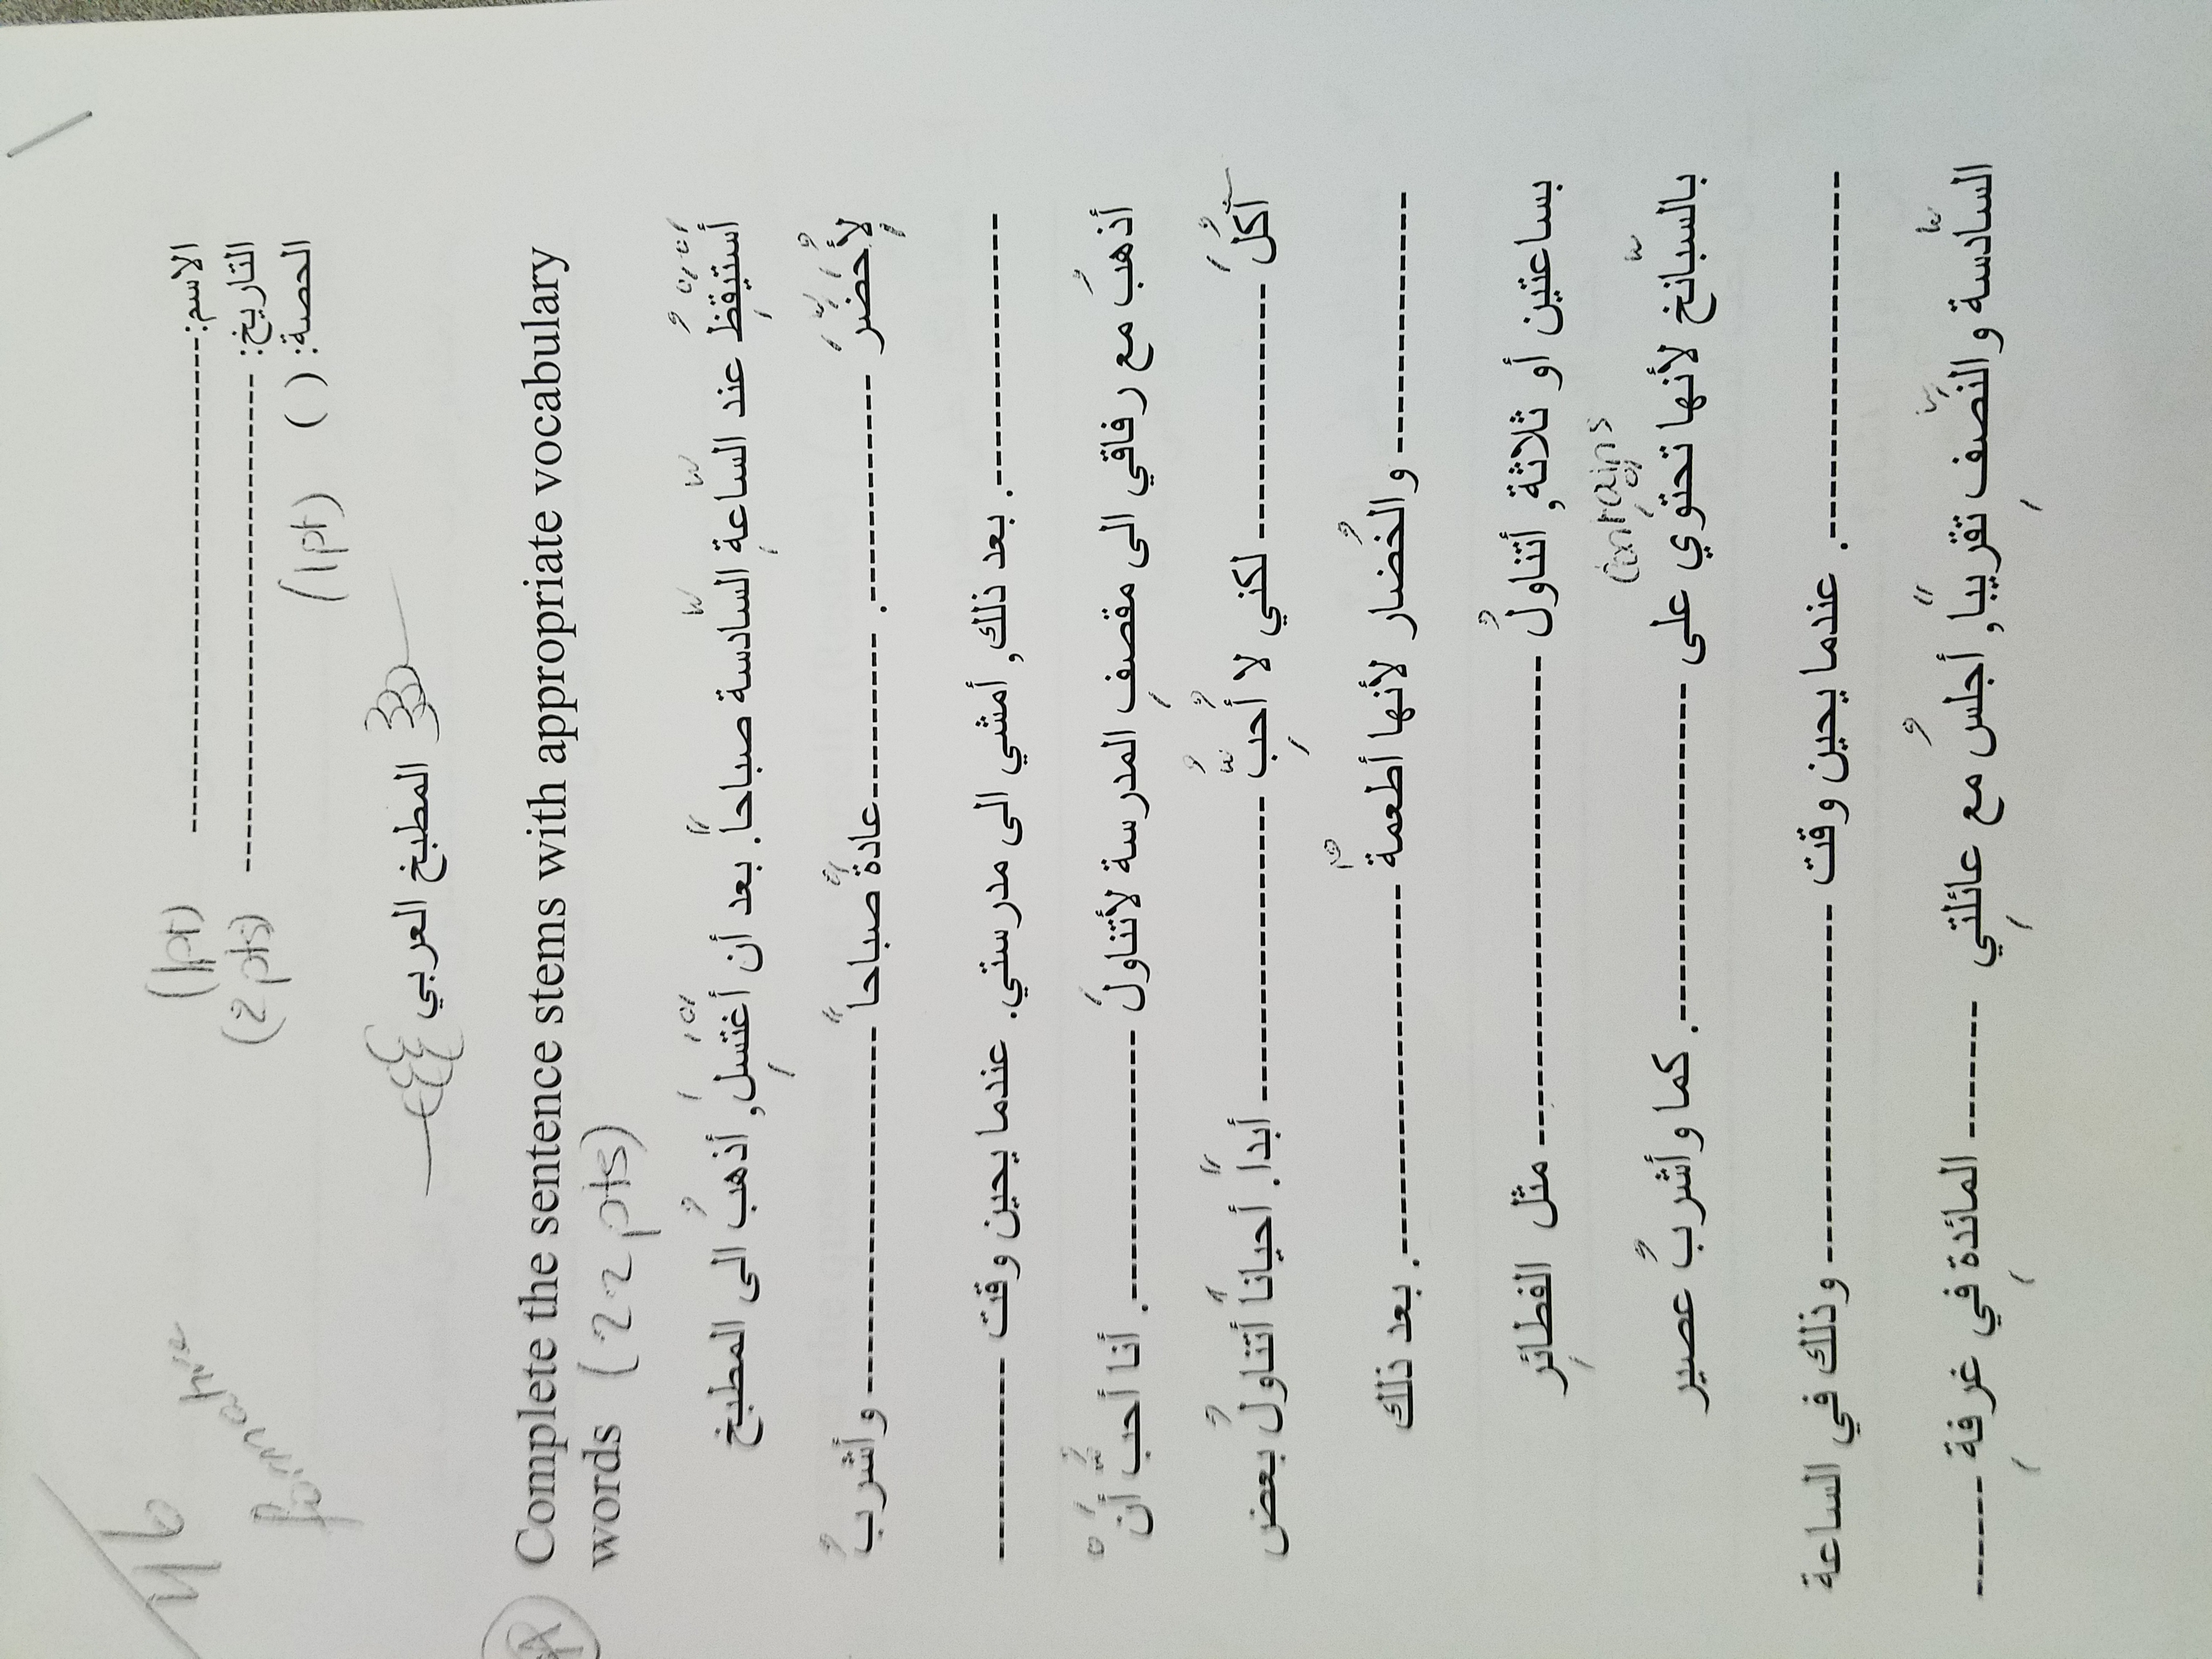 الاسم: ------------------------------ (1pt)
التاريخ: ------------------------------ (2 pts)
الحصة: ( ) (1pt)
46
formative
المطبخ العربي
A
Complete the sentence stems with appropriate vocabulary
words (22 pts)
أستَيقِظُ عند السّاعةِ السّادسة صباحاً. بعد أن أغتَسِل, أذهبُ الى المطبخ
لِأُحَضّرَ ---------------- . ---------------- عادةً صباحاً ---------------- وأشربُ
---------------- . بعد ذلك, أمشي الى مدرستي. عندما يحين وقت ----------------
أذهبُ مع رفاقي الى مقصفِ المدرسة لأتناولَ ---------------- . أنا أحبُّ أنْ
آكُلَ ---------------- لكني لا أُحِبُّ ---------------- أبداً. أحياناً أتناولُ بعض
---------------- والخُضار لأنها أطعمةٌ ---------------- . بعد ذلك
بساعتين أو ثلاثة, أتناولُ ---------------- مثل الفطائِر
contains
بالسّبانخ لأنها تحتوي على ---------------- . كما وأشربُ عصير
---------------- . عندما يحين وقت ---------------- وذلك في الساعة
السّادسة والنّصفِ تقريباً, أجلسُ مع عائلتِي -------- المائدة في غرفةِ --------